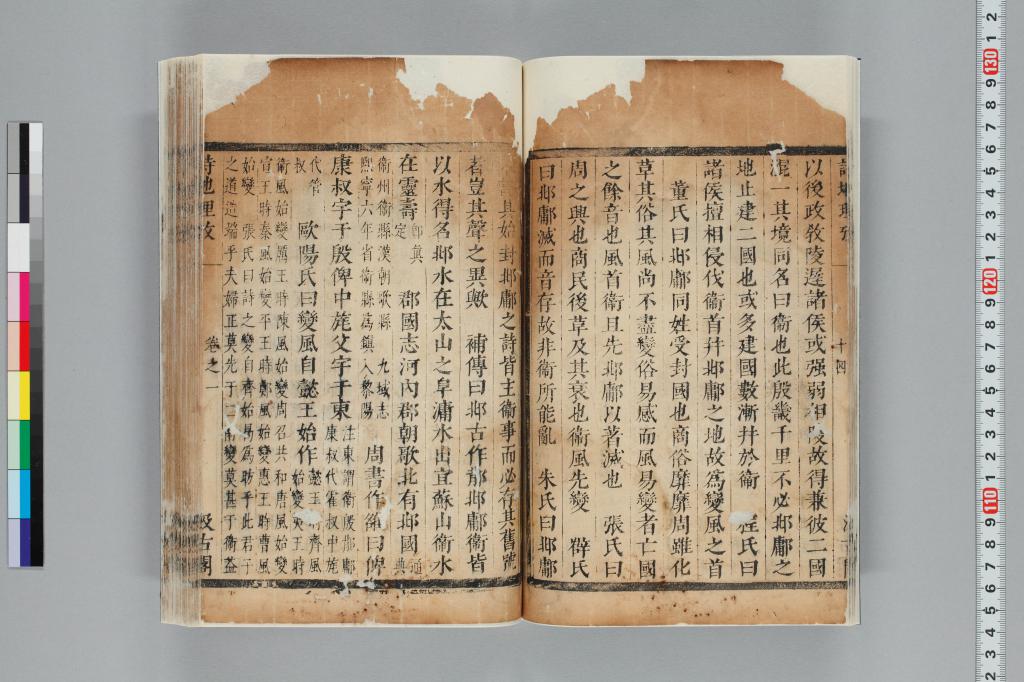 以後政教陵遲諸侯或强弱相陵故得兼彼二國
混一其境同名曰衞也此殷畿千里不必邶鄘之
地止建二國也或多建國數漸幷於衞 程氏曰
諸侯擅相侵伐衞首幷邶鄘之地故爲變風之首
董氏曰邶鄘同姓受封國也商俗靡靡周雖化
草其俗其風尚不盡變俗易感而風易變者亡國
之餘音也風首衞且先邶鄘以著滅也 張氏曰
周之興也商民後革及其衰也衞風先變 薛氏
曰邶鄘滅而音存故非衞所能亂 朱氏曰邶鄘
其始封邶鄘之詩皆主衞事而必存其舊號
者豈其聲之異歟 補傳曰邶古作鄁邶鄘衞皆
以水得名邶水在太山之阜鄘水出宜蘇山衞水
在靈壽眞定 郡國志河內郡朝歌北有邶國通典
衞州衞縣漢朝歌縣 九域志
熙寧六年省衞縣爲鎭入黎陽
周書作雒曰俾
康叔宇于殷俾中旄父宇于東注東謂衞殷邶鄘
康叔代霍叔中旄
代管叔 歐陽氏曰變風自懿王始作懿王時齊風
始變夷王時
衞風始變厲王時陳風始變周召共和唐風始變
宣王時秦風始變平王時鄭風始變惠王時曹風
始變 張氏曰詩之變自齊始曷爲昉乎此君子
之道造端乎夫婦正莫先于二南變莫甚于衞益
詩地里攷 卷之一 汲古閣